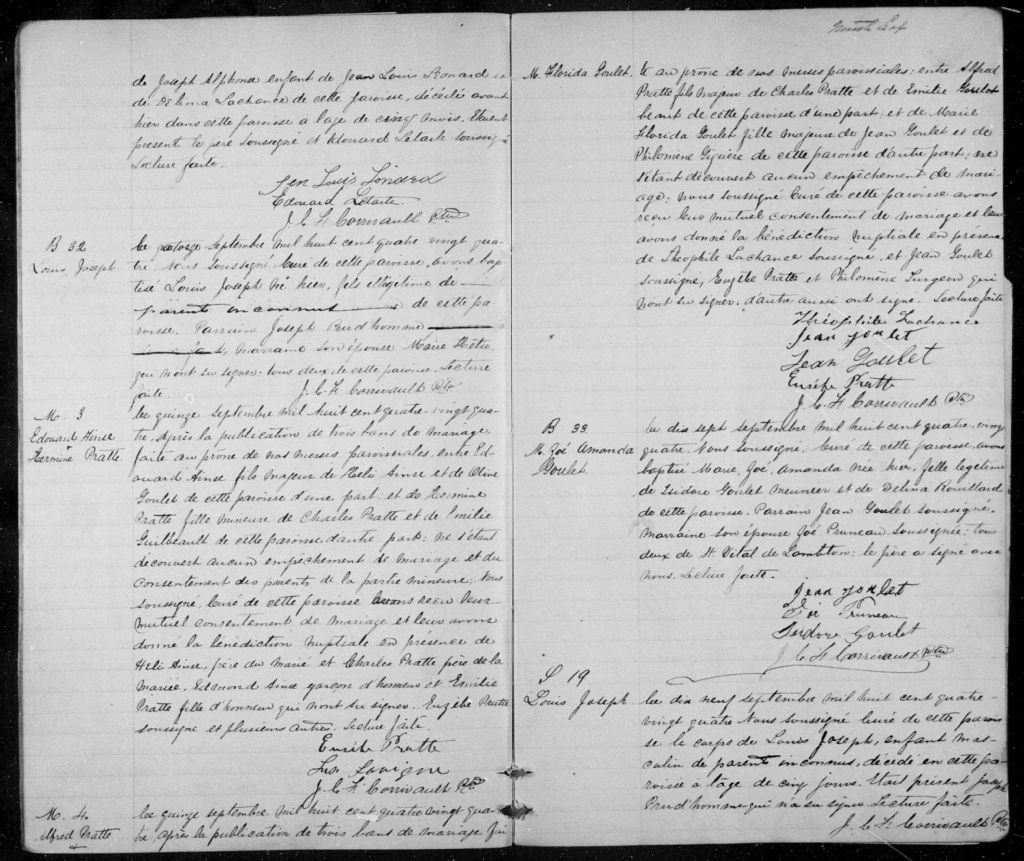 de Joseph Alphonse enfant de Jean Louis Lonard et
de Delima Lachance de cette paroisse, décédé avant
hier dans cette paroisse a l'age de cinq mois. Etaient
present le père soussigné et Edouard Letarte soussigné
Lecture faite.
Jen Louis Lonard
Edouard Letarte
J. C. H Corrivault Ptre
B 32
Louis, Joseph
Le quatorze Septembre mil huit cent quatre vingt qua-
tre, Nous Soussigné, Curé de cette paroisse, avons bap-
tisé Louis Joseph né hier, fils illégitime de
parents inconnus de cette pa-
roisse. Parrain Joseph Prudhomme
marraine son épouse Marie Hêtu
qui n'ont su signer; tous deux de cette paroisse. Lecture
faite.
J. C. H Corrivault Ptre
M. 3
Edouard Ainse
Hermine Pratte
Le quinze Septembre mil huit cent quatre-vingt qua-
tre, après la publication de trois bans de mariage
faite au prone de nos messes paroissiales, entre Ed-
ouard Ainse fils majeur de Héli Ainse et de Olive
Goulet de cette paroisse d'une part; et de Hermine
Pratte fille mineure de Charles Pratte et de Emilie
Guilbeault de cette paroisse d'autre part: ne s'étant
découvert aucun empêchement de mariage et du
consentement des parents de la partie mineure; Nous
soussigné, Curé de cette paroisse avons recu leur
mutuel consentement de mariage et leur avons
donné la bénédiction nuptiale en présence de
Héli Ainse, père du marié et Charles Pratte père de la
mariée, Edmond Ainse garçon d'honneur et Emilie
Pratte fille d'honneur qui n'ont su signer. Euzèbe Pratte
soussigné et plusieurs autres. Lecture faite.
Eusèbe Pratte
Lavigne
J. C. H Corrivault Ptre
M. 4
Alfred Pratte
+
Le quinze septembre, mil huit cent quatre vingt qua-
tre, après la publication de trois bans de mariage fai
M. Florida Goulet
te au prône de nos messes paroissiales: entre Alfred
Pratte fils majeur de Charles Pratte et de Emilie Guil
beaut de cette paroisse d'une part, et de Marie
Florida Goulet fille majeure de Jean Goulet et de
Philomène Giguère de cette paroisse d'autre part; ne
s'étant découvert aucun empêchement de mari-
age; nous soussigné Curé de cette paroisse avons
reçu leur mutuel consentement de mariage et leur
avons donné la bénédiction nuptiale en présence
de Théophile Lachance soussigné, et Jean Goulet
soussigné, Eugèbe Pratte et Philomène Surgeon qui
n'ont su signer; d'autre aussi ont signé. Lecture faite
Théophile Lachance
Jean Goulet
Jean Goulet
Eusèbe Pratte
J. C. H Corrivault Ptre
B 33
M. Zoé Amanda
Goulet
Le dix sept septembre mil huit cent quatre-vingt
quatre. Nous soussigné, Curé de cette paroisse, avons
baptisé Marie, Zoé, Amanda née hier, fille legitime
de Isidore Goulet meunier et de Delina Rouillard
de cette paroisse. Parrain Jean Goulet soussigné.
marraine son épouse Zoé Pruneau soussignée; tous
deux de St Vital de Lambton: le père a signé avec
nous. Lecture faite.
Jean Goulet
Zoé Pruneau
Isidore Goulet
J. C. H Corrivault Ptre
S 19
Louis Joseph
Le dix neuf septembre mil huit cent quatre-
vingt quatre Nous soussigné Curé de cette parois
se le corps de Louis Joseph, enfant mas-
culin de parents inconnus, décédé en cette pa-
roisse à l'âge de cinq jours. Etait présent Joseph
Prudhomme qui n'a su signer Lecture faite.
J. C. H. Corrivault Ptre